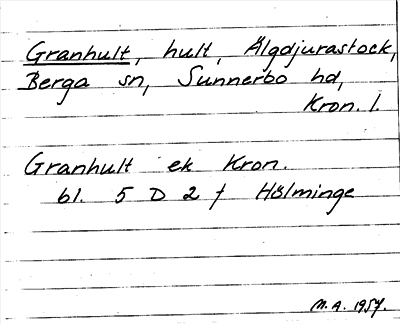 Granhult, hult, Älgdjurastock,
Berga sn, Sunnerbo hd,
Kron. l.
Granhult ek Kron.
bl. 5 D 2 f Hölminge
M.A. 1957.